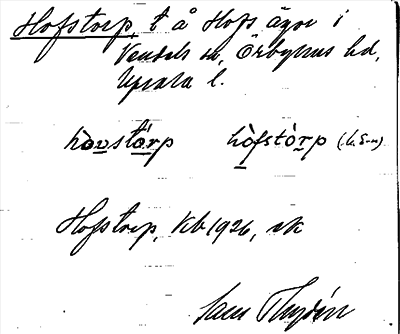 Hofstorp, t å Hofs ägor i
Vendels sn, Örbyhus hd,
Upsala l.
hòvstórp hòfstòrp
Hofstorp, Kb 1926, sk